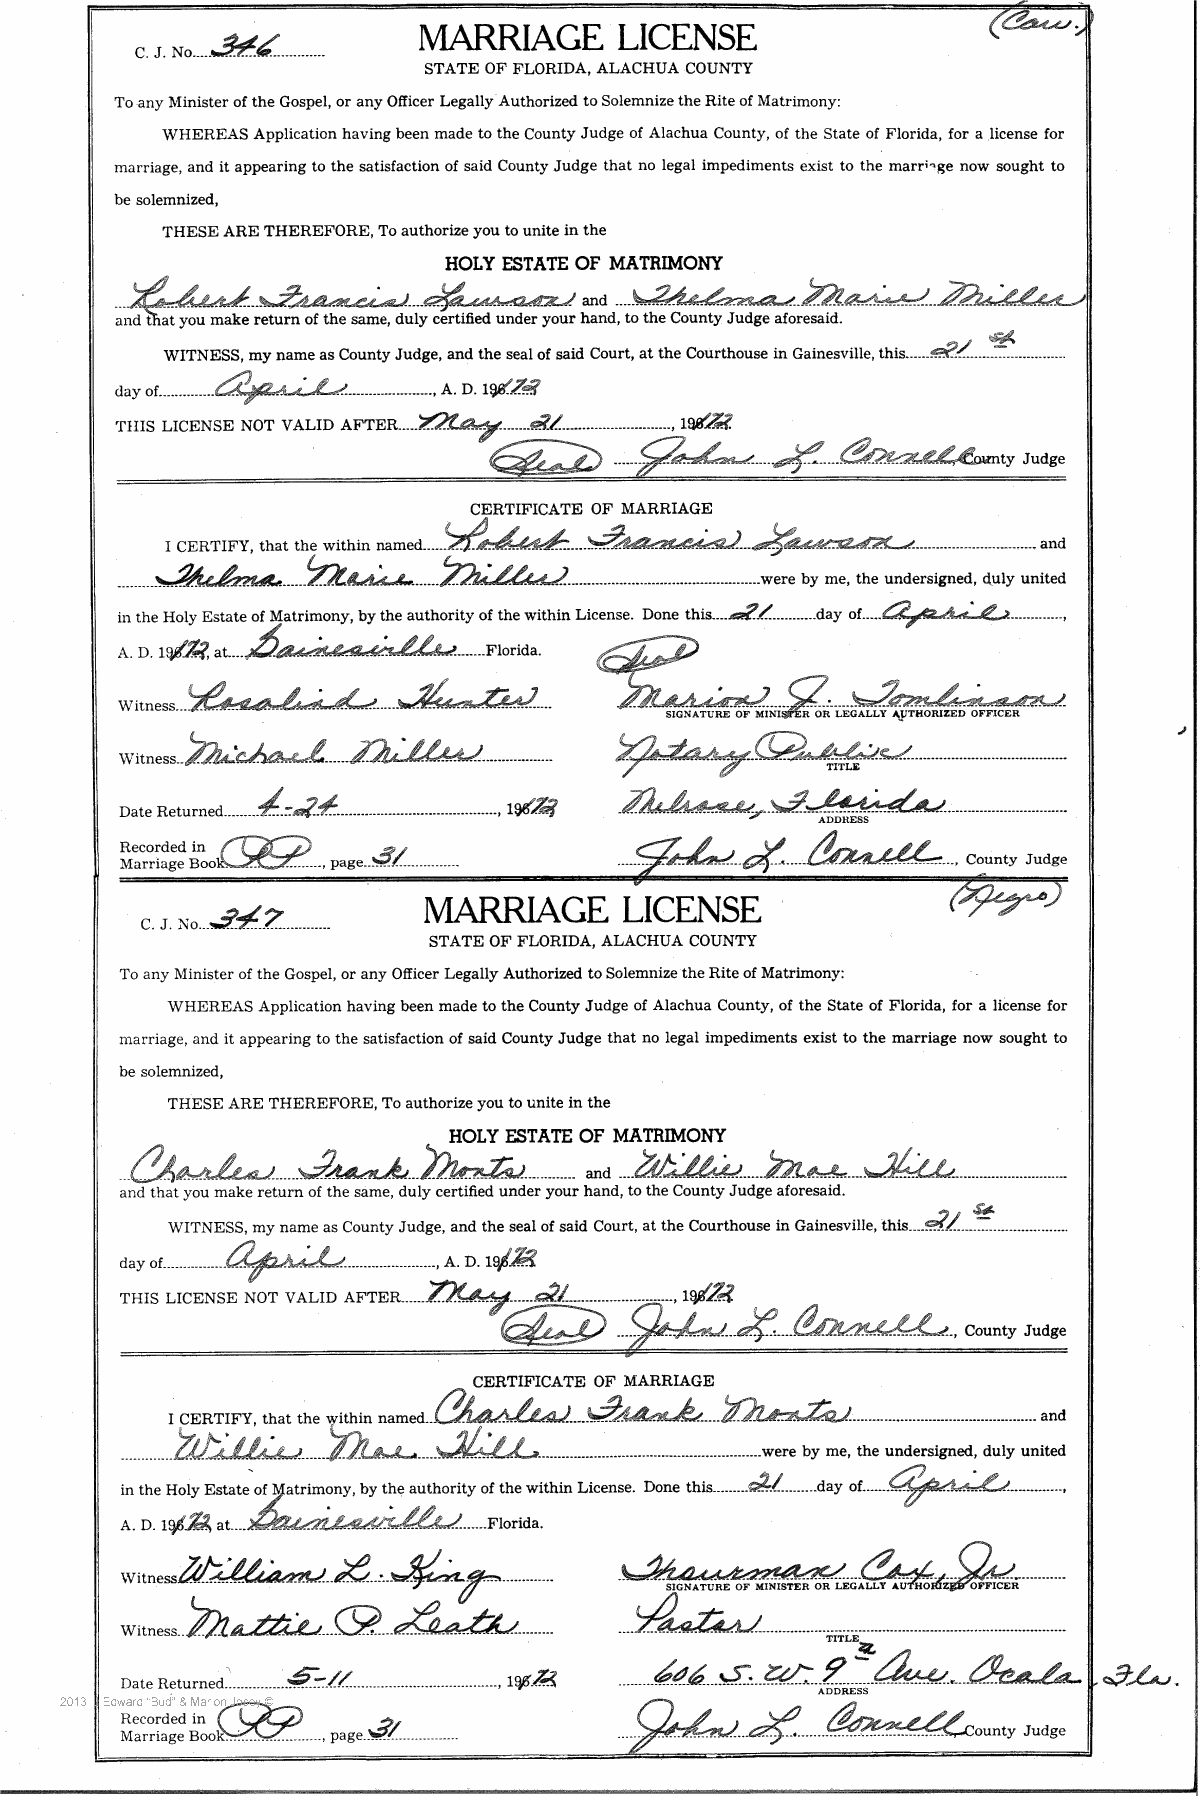 (Cau.)
C. J. No. 346
MARRIAGE LICENSE
STATE OF FLORIDA, ALACHUA COUNTY
To any Minister of the Gospel, or any Officer Legally Authorized to Solemnize the Rite of Matrimony:
WHEREAS Application having been made to the County Judge of Alachua County, of the State of Florida, for a license for
marriage, and it appearing to the satisfaction of said County Judge that no legal impediments exist to the marriage now sought to
be solemnized,
THESE ARE THEREFORE, To authorize you to unite in the
HOLY ESTATE OF MATRIMONY
Robert Francis Lawson and Thelma Marie Miller
and that you make return of the same, duly certified under your hand, to the County Judge aforesaid.
WITNESS, my name as County Judge, and the seal of said Court, at the Courthouse in Gainesville, this 21st
day of April, A. D. 1972
THIS LICENSE NOT VALID AFTER May 21, 1972
(Seal) John L. Connell County Judge
CERTIFICATE OF MARRIAGE
I CERTIFY, that the within named Robert Francis Lawson and
Thelma Marie Miller were by me, the undersigned, duly united
in the Holy Estate of Matrimony, by the authority of the within License. Done this 21 day of April,
A. D. 1972, at Gainesville Florida. (Seal)
Witness Rosalind Hunter Marion J. Tomlinson
SIGNATURE OF MINISTER OR LEGALLY AUTHORIZED OFFICER
Witness Michael Miller Notary Public
TITLE
Date Returned 4-24, 1972 Melrose, Florida
ADDRESS
Recorded in
Marriage Book PP, page 31 John L. Connell, County Judge
(Negro)
C. J. No. 347
MARRIAGE LICENSE
STATE OF FLORIDA, ALACHUA COUNTY
To any Minister of the Gospel, or any Officer Legally Authorized to Solemnize the Rite of Matrimony:
WHEREAS Application having been made to the County Judge of Alachua County, of the State of Florida, for a license for
marriage, and it appearing to the satisfaction of said County Judge that no legal impediments exist to the marriage now sought to
be solemnized,
THESE ARE THEREFORE, To authorize you to unite in the
HOLY ESTATE OF MATRIMONY
Charles Frank Monts and Willie Mae Hill
and that you make return of the same, duly certified under your hand, to the County Judge aforesaid.
WITNESS, my name as County Judge, and the seal of said Court, at the Courthouse in Gainesville, this 21st
day of April, A. D. 1972
THIS LICENSE NOT VALID AFTER May 21, 1972
(Seal) John L. Connell, County Judge
CERTIFICATE OF MARRIAGE
I CERTIFY, that the within named Charles Frank Monts and
Willie Mae Hill were by me, the undersigned, duly united
in the Holy Estate of Matrimony, by the authority of the within License. Done this 21 day of April,
A. D. 1972 at Gainesville Florida.
Witness William L. King Thourman Cox, Jr
SIGNATURE OF MINISTER OR LEGALLY AUTHORIZED OFFICER
Witness Mattie P. Leath Pastor
TITLE
Date Returned 5-11, 1972 606 S. W. 9th Ave. Ocala, Fla.
ADDRESS
2013 Edward "Bud" & Marion
Recorded in
Marriage Book PP, page 31 John L. Connell County Judge